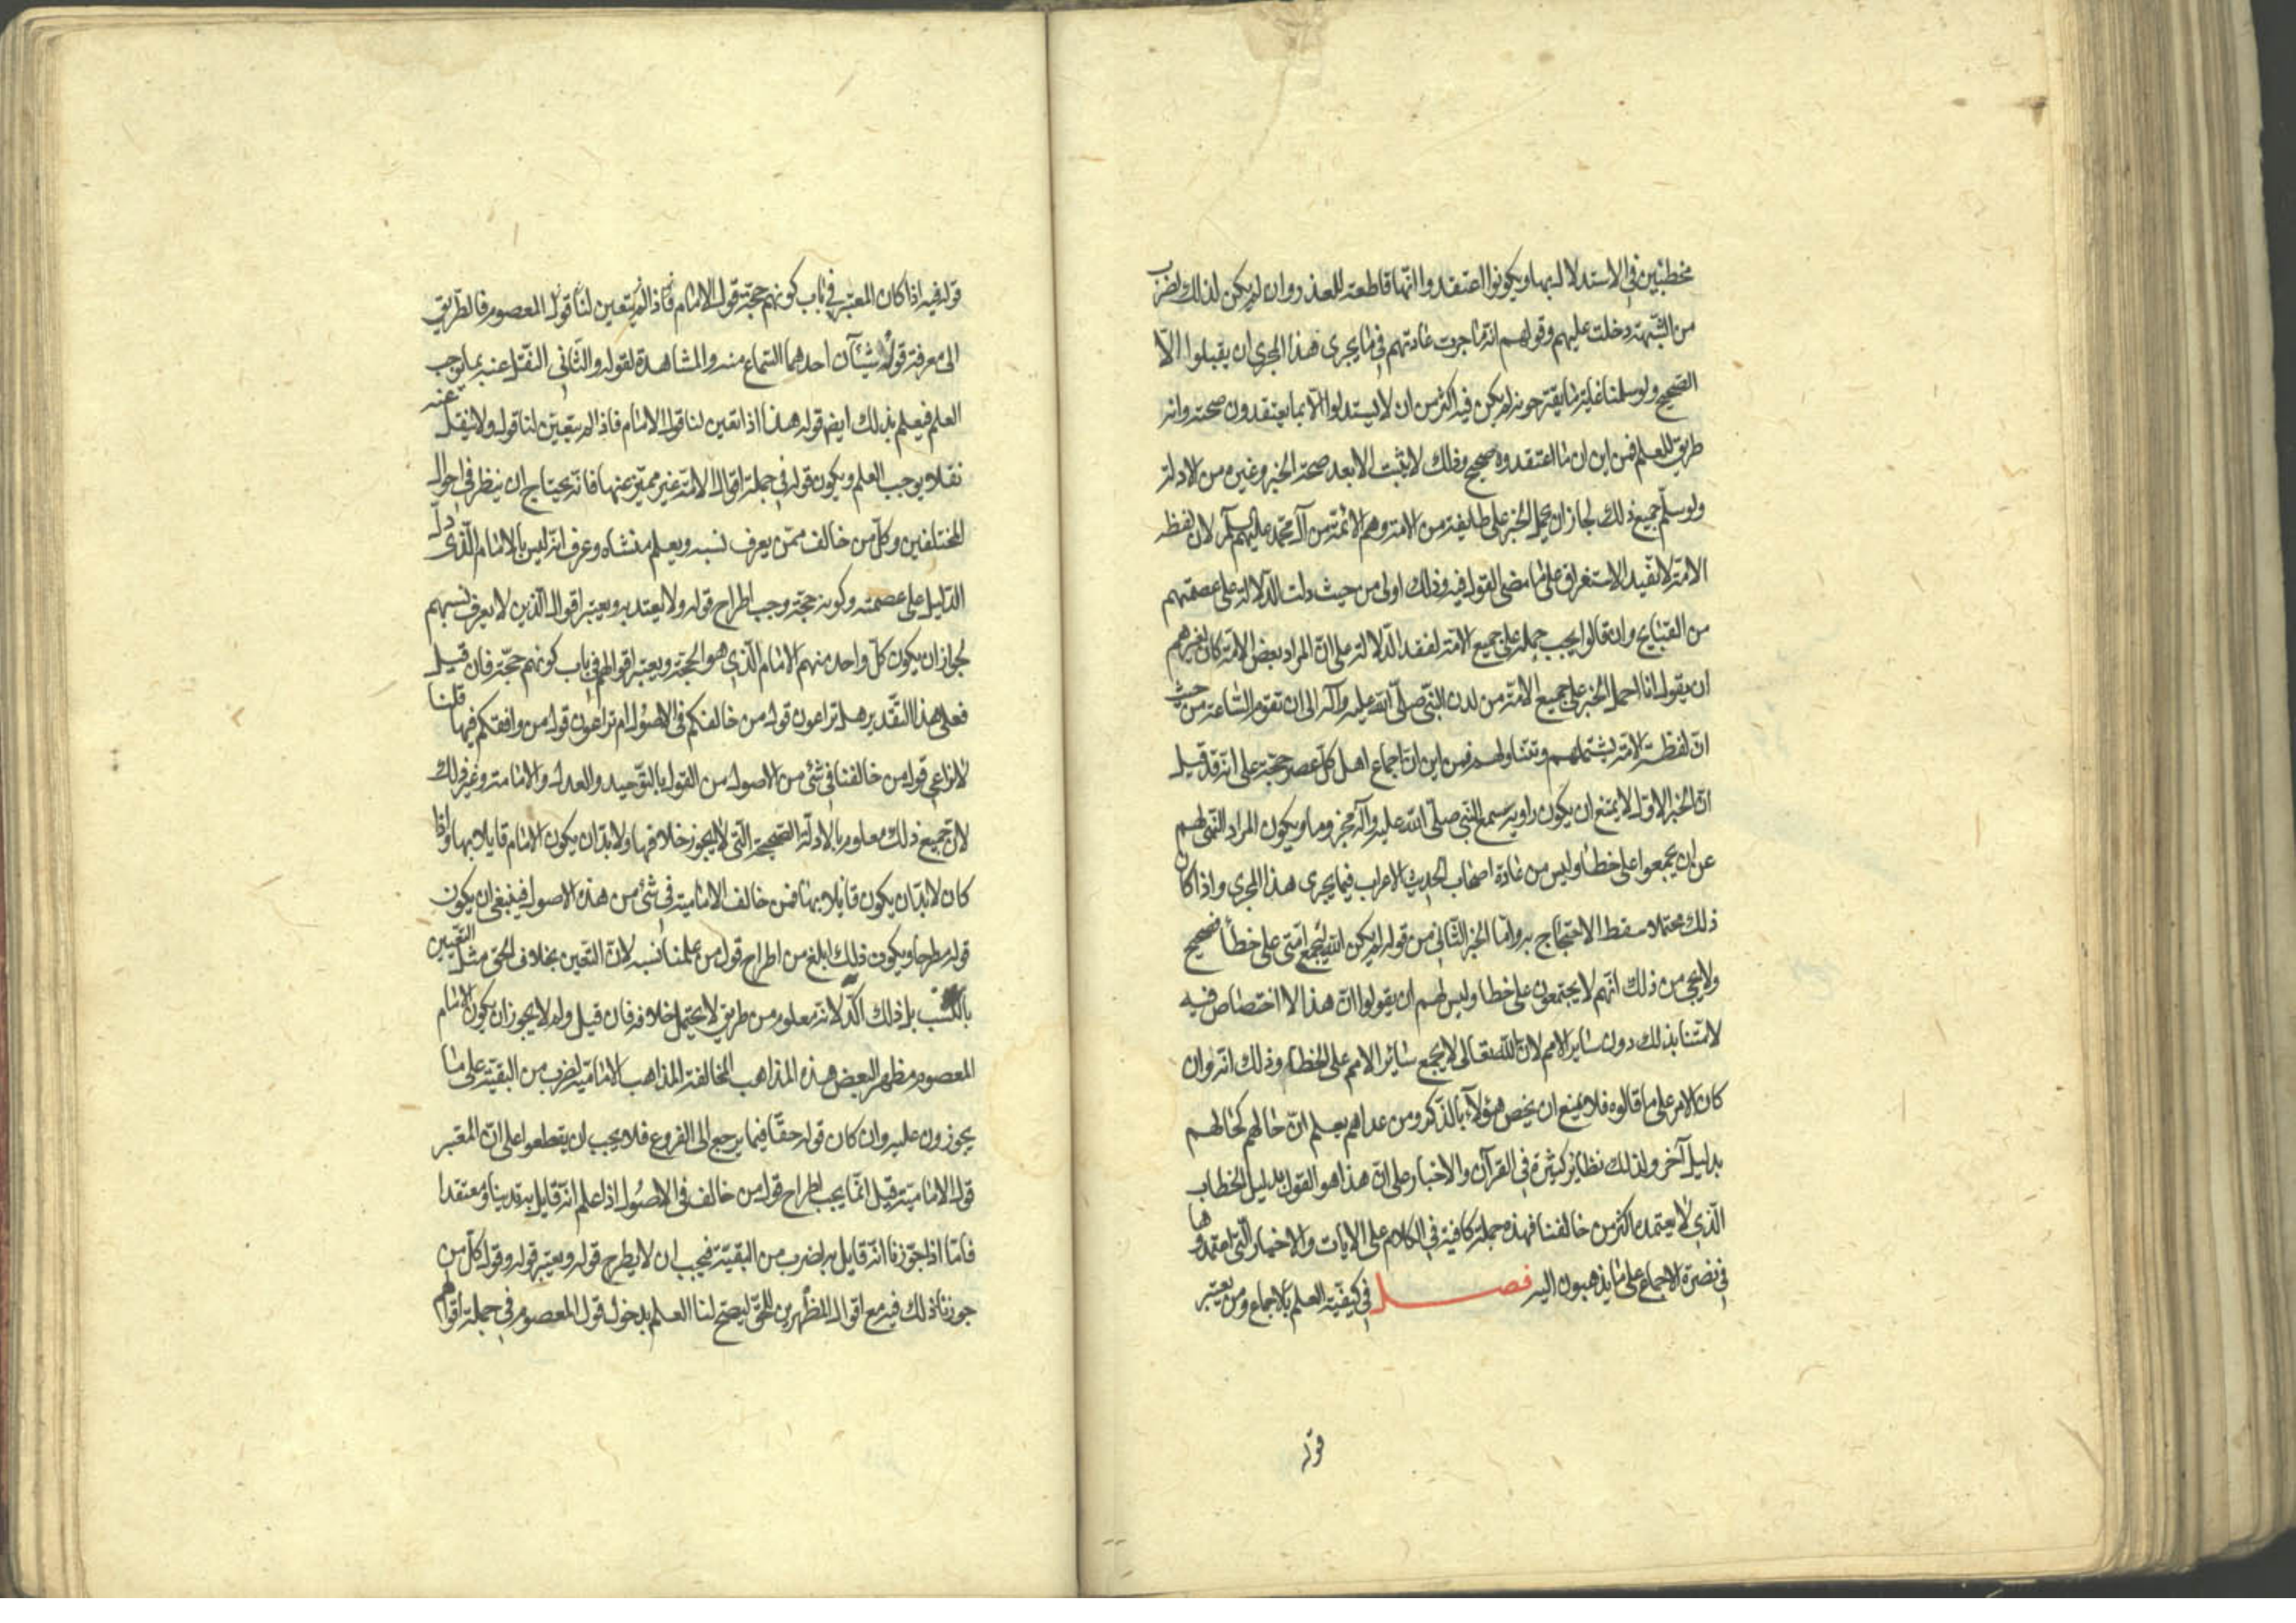 مخطئين في الاستدلال بها ويكونوا اعتقدوا انّها قاطعة للعذر وان لم يكن لذلك لضرب
من الشّبهة دخلت عليهم وقولهم انّه ما جرت عادتهم في ما يجرى هذا المجرى ان يقبلوا الّا
الصّحيح ولو سلّمنا غاية ما يقترحونه لم يكن فيه اكثر من ان لا يستدلوا الّا بما يعتقدون صحته وانه
طريق للعلم فمن اين ان ما اعتقدوه صحيح وذلك لا يثبت الا بعد صحة الخبر وغيره من الادلة
ولو سلّم جميع ذلك لجاز ان يحمل الخبر على طايفة من الامة وهم الائمّة من آل محمّد عليهم السلم لان لفظ
الامّة لا تفيد الاستغراق على ما مضى القول فيه وذلك اولى من حيث دلت الدّلالة على عصمتهم
من القبايح وان قالوا يجب حمله على جميع الامة لفقد الدّلالة على انّ المراد بعض الامّة كان لغيرهم
ان يقول انا احمل الخبر على جميع الامّة من لدن النبّي صلّى الله عليه وآله الى ان تقوم السّاعة من حيث
انّ لفظة الامّة يشتملهم وتتناولهم فمن اين انّ اجماع اهل كلّ عصر حجّة على انّه قد قيل
انّ الخبر الاوّل لا يمتنع ان يكون راويه سمع النّبي صلّى الله عليه وآله مجزوما ويكون المراد النّهى لهم
عن ان يجمعوا على خطأ وليس من عادة اصحاب الحديث الاعراب فيما يجرى هذا المجرى واذا كان
ذلك محتملا سقط الاحتجاج به وامّا الخبر الثّاني من قوله لم يكن الله ليجمع امّتى على خطأ فصحيح
ولا يجئ من ذلك انّهم لا يجتمعون على خطا وليس لهم ان يقولوا انّ هذا لا اختصاص فيه
لامّتنا بذلك دون ساير الامم لانّ الله تعالى لا يجمع سائر الامم على الخطاء وذلك انّه وان
كان الامر على ما قالوه فلا يمتنع ان يخص هؤلاء بالذّكر ومن عداهم يعلم انّ حالهم كحالهم
بدليل آخر ولذلك نظائر كثيرة في القرآن والاخبار على انّ هذا هو القول بدليل الخطاب
الّذي لا يعتمده اكثر من خالفنا فهذه جملة كافية في الكلام على الايات والاخبار الّتى اعتمدوها
في نصرة الاجماع على ما يذهبون اليه فصل في كيفيّة العلم بالاجماع ومن يعتبر
قوله
قوله فيه اذا كان المعتبر في باب كونهم حجّة قول الامام فاذا لم يتعين لنا قول المعصوم فالطّريق
الى معرفة قوله شيئآن احدهما السّماع منه والمشاهدة لقوله والثّانى النّقل عنه بما يوجب
العلم فيعلم بذلك ايضا قوله هذا اذا تعين لنا قول الامام فاذا لم يتعين لنا قوله ولا ينقل عنه
نقلا يوجب العلم ويكون قوله في جملة اقوال الامّة غير مميّز عنها فانّه يحتاج ان ينظر في احوال
المختلفين وكلّ من خالف ممّن يعرف نسبه ويعلم منشاه وعرف انّه ليس بالامام الّذى دلّ
الدّليل على عصمته وكونه حجّة وجب اطراح قوله ولا يعتد به ويعتبر اقوال الّذين لا يعرف نسبهم
لجواز ان يكون كلّ واحد منهم الامام الّذي هو الحجّة ويعتبر اقوالهم في باب كونهم حجّة فان قيل
فعلى هذا التقدير هل تراعون قول من خالفكم في الاصول ام تراعون قول من وافقكم فيها قلنا
لا نراعي قول من خالفنا في شئ من الاصول من القول بالتوّحيد والعدل والامامة وغير ذلك
لانّ جميع ذلك معلوم بالادلّة الصّحيحة الّتى لا يجوز خلافها ولا بدّ ان يكون الامام قايلا بها واذا
كان لا بدّ ان يكون قايلا بها فمن خالف الاماميّة في شئ من هذه الاصول فينبغى ان يكون
قوله مطرحا ويكون ذلك ابلغ من اطراح قول من علمنا نسبه لانّ التّعين بخلاف الحقّ مثل التّعيين
بالنّسب بل ذلك آكد لانّه معلوم من طريق لا يحتمل خلافه فان قيل ولم لا يجوز ان يكون الامام
المعصوم مظهرا لبعض هذه المذاهب المخالفة لمذاهب الاماميّة لضرب من التقيّة على ما
يجوزون عليه وان كان قوله حقّا فيما يرجع الى الفروع فلا يجب ان يقطعوا على انّ المعتبر
قول الاماميّة قيل انّما يجب اطراح قول من خالف في الاصول اذا علم انّه قايل به تدينا ومعتقدا
فامّا اذا جوّزنا انّه قايل به لضرب من التقيّة فيجب ان لا يطرح قوله ويعتبر قوله وقول كلّ من
جوزنا ذلك فيه مع اقوال المظهرين للحّق ليصحّ لنا العلم بدخول قول المعصوم في جملة اقوالهم